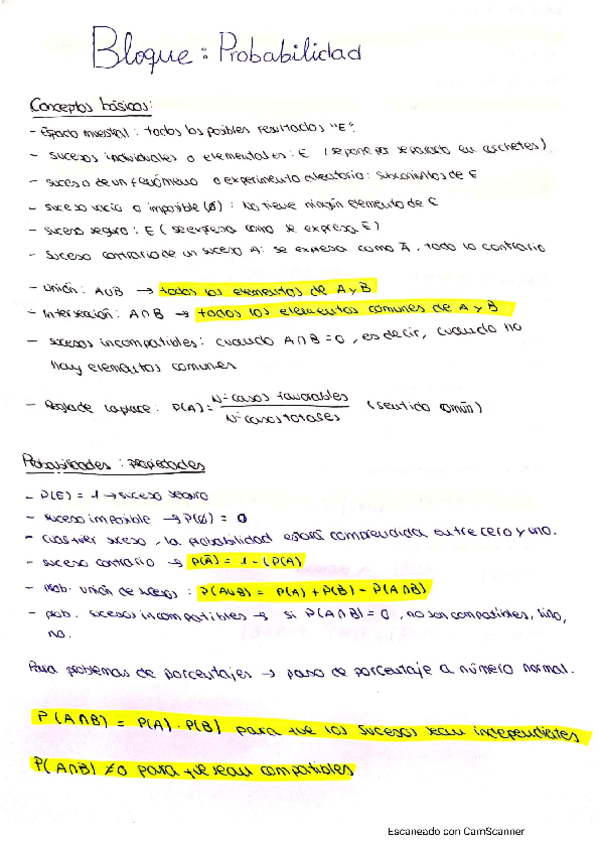 Bloque: Probabilidad
Conceptos básicos:
- Espacio muestral: todos los posibles resultados "E".
- Sucesos individuales o elementales: E (se pone por separado en corchetes)
- Suceso de un fenómeno o experimento aleatorio: subconjuntos de E
- Suceso vacío o imposible (∅): No tiene ningún elemento de E
- Suceso seguro: E (se expresa como se expresa E)
- Suceso contrario de un suceso A: se expresa como Ā, todo lo contrario
- Unión: A∪B → todos los elementos de A y B
- Intersección: A∩B → todos los elementos comunes de A y B
- Sucesos incompatibles: cuando A∩B=0, es decir, cuando no
hay elementos comunes
- Regla de Laplace: P(A) = Nº casos favorables / Nº casos totales (sentido común)
Probabilidades: propiedades
- P(E) = 1 → suceso seguro
- Suceso imposible → P(∅) = 0
- Cualquier suceso, la probabilidad estará comprendida entre cero y uno.
- Suceso contrario → P(Ā) = 1 - (P(A)
- Prob. unión de sucesos: P(A∪B) = P(A) + P(B) - P(A∩B)
- prob. sucesos incompatibles → si P(A∩B) = 0, no son compatibles, sino,
no.
Para problemas de porcentajes → paso de porcentaje a número normal.
P(A∩B) = P(A) · P(B) para que los sucesos sean independientes
P(A∩B) ≠ 0 para que sean compatibles
Escaneado con CamScanner